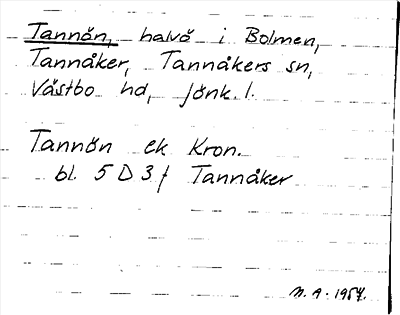 Tannön, halvö i Bolmen,
Tannåker, Tannåkers sn,
Västbo hd, Jönk. l.
Tannön ek Kron.
bl. 5 D 3 f Tannåker
M. A. 1954.